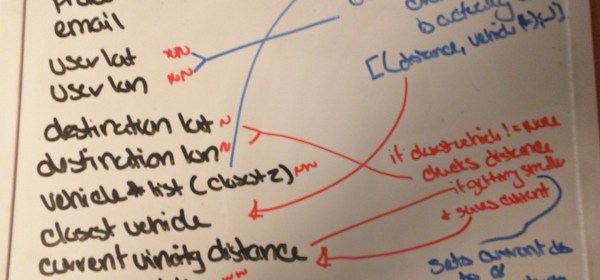 email
user lat
user lon
destination lat
destination lon
vehicle * list (closest 2)
closest vehicle
current vinity distance
basically
[(distance, vehicle
if closest vehicle != none
checks distance
if getting smaller
+ saves current
sets current as